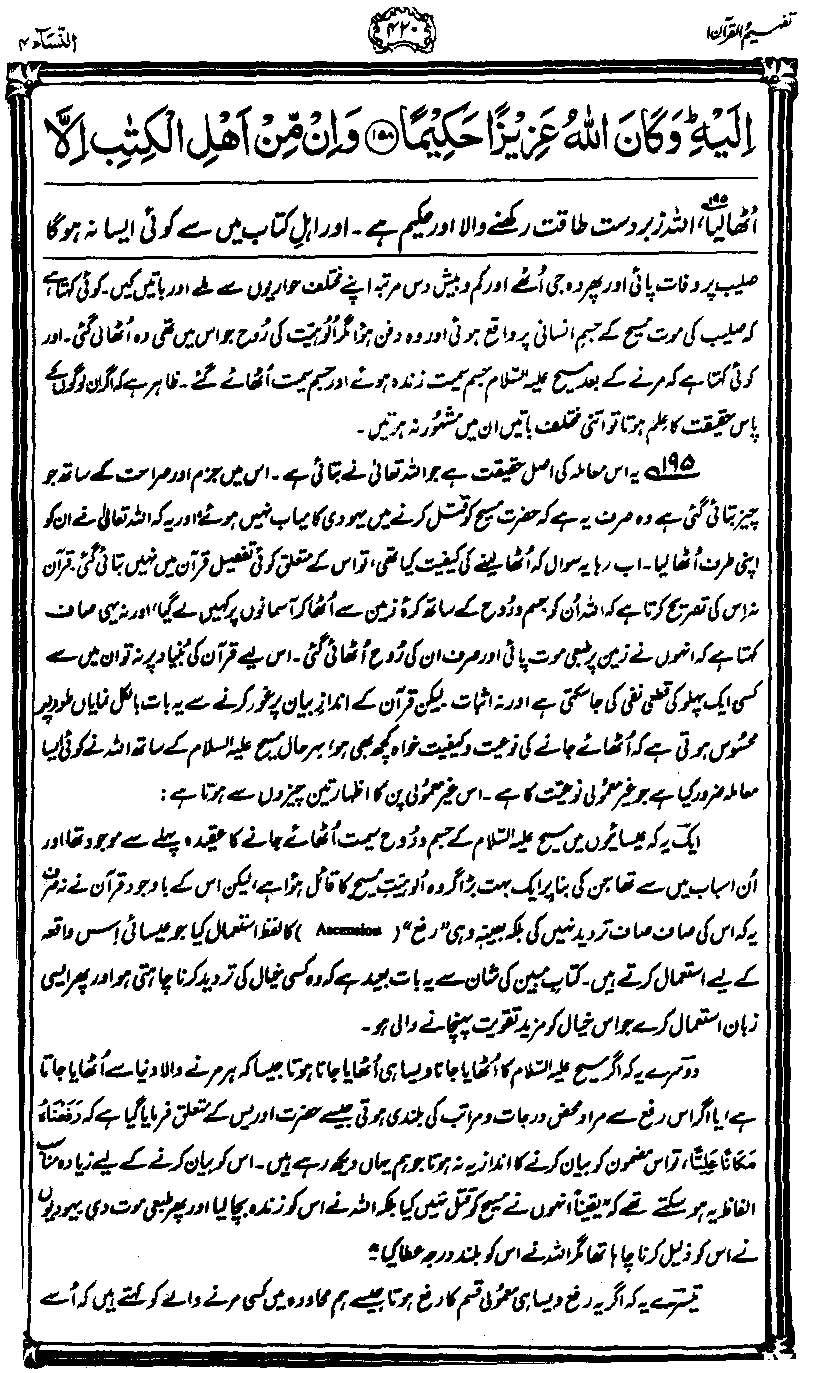 تفہیم القرآن ۱
۴۲۰
النساء ۴
اِلَیْهِ ؕ وَكَانَ اللّٰهُ عَزِیْزًا حَكِیْمًا ﴿۱۵۸﴾ وَاِنْ مِّنْ اَهْلِ الْكِتٰبِ اِلَّا
اُٹھا لیا۱۹۵، اللہ زبردست طاقت رکھنے والا اور حکیم ہے۔ اور اہلِ کتاب میں سے کوئی ایسا نہ ہوگا
صلیب پر وفات پائی اور پھر وہ جی اُٹھے اور کم و بیش دس مرتبہ اپنے مختلف حواریوں سے ملے اور باتیں کیں۔ کوئی کہتا ہے
کہ صلیب کی موت مسیح کے جسمِ انسانی پر واقع ہوئی اور وہ دفن ہوا مگر اُلوہیّت کی رُوح جو اس میں تھی وہ اُٹھالی گئی۔ اور
کوئی کہتا ہے کہ مرنے کے بعد مسیح علیہ السّلام جسم سمیت زندہ ہوئے اور جسم سمیت اُٹھائے گئے۔ ظاہر ہے کہ اگر ان لوگوں کے
پاس حقیقت کا علم ہوتا تو اتنی مختلف باتیں ان میں مشہُور نہ ہوتیں۔
۱۹۵ یہ اس معاملہ کی اصل حقیقت ہے جو اللہ تعالیٰ نے بتائی ہے۔ اس میں جزم اور صراحت کے ساتھ جو
چیز بتائی گئی ہے وہ صرف یہ ہے کہ حضرت مسیح کو قتل کرنے میں یہودی کامیاب نہیں ہوئے، اور یہ کہ اللہ تعالیٰ نے ان کو
اپنی طرف اُٹھا لیا۔ اب رہا یہ سوال کہ اُٹھا لینے کی کیفیت کیا تھی، تو اس کے متعلق کوئی تفصیل قرآن میں نہیں بتائی گئی۔ قرآن
نہ اس کی تصریح کرتا ہے کہ اللہ اُن کو جسم و رُوح کے ساتھ کرۂ زمین سے اُٹھا کر آسمانوں پر کہیں لے گیا، اور نہ یہی صاف
کہتا ہے کہ انہوں نے زمین پر طبعی موت پائی اور صرف ان کی رُوح اُٹھائی گئی۔ اس لیے قرآن کی بُنیاد پر نہ تو ان میں سے
کسی ایک پہلو کی قطعی نفی کی جاسکتی ہے اور نہ اثبات۔ لیکن قرآن کے اندازِ بیان پر غور کرنے سے یہ بات بالکل نمایاں طور پر
محسُوس ہوتی ہے کہ اُٹھائے جانے کی نوعیت و کیفیت خواہ کچھ بھی ہو، بہرحال مسیح علیہ السلام کے ساتھ اللہ نے کوئی ایسا
معاملہ ضرور کیا ہے جو غیر معمُولی نوعیّت کا ہے۔ اس غیر معمُولی پن کا اظہار تین چیزوں سے ہوتا ہے:
ایک یہ کہ عیسائیوں میں مسیح علیہ السّلام کے جسم و رُوح سمیت اُٹھائے جانے کا عقیدہ پہلے سے موجود تھا اور
اُن اسباب میں سے تھا جن کی بنا پر ایک بہت بڑا گروہ اُلوہیّتِ مسیح کا قائل ہوا ہے، لیکن اس کے باوجود قرآن نے نہ صرف
یہ کہ اس کی صاف صاف تردید نہیں کی بلکہ بعینہٖ وہی ”رفع“ ( Ascension ) کا لفظ استعمال کیا جو عیسائی اِس واقعہ
کے لیے استعمال کرتے ہیں۔ کتابِ مبین کی شان سے یہ بات بعید ہے کہ وہ کسی خیال کی تردید کرنا چاہتی ہو اور پھر ایسی
زبان استعمال کرے جو اس خیال کو مزید تقویت پہنچانے والی ہو۔
دوسرے یہ کہ اگر مسیح علیہ السّلام کا اُٹھایا جانا ویسا ہی اُٹھایا جانا ہوتا جیسا کہ ہر مرنے والا دنیا سے اُٹھایا جاتا
ہے، یا اگر اس رفع سے مراد محض درجات و مراتب کی بلندی ہوتی جیسے حضرت ادریس کے متعلق فرمایا گیا ہے کہ رَفَعْنَاہُ
مَکَانًا عَلِیًّا، تو اس مضمون کو بیان کرنے کا انداز یہ نہ ہوتا جو ہم یہاں دیکھ رہے ہیں۔ اس کو بیان کرنے کے لیے زیادہ مناسب
الفاظ یہ ہو سکتے تھے کہ ”یقیناً انہوں نے مسیح کو قتل نہیں کیا بلکہ اللہ نے اس کو زندہ بچا لیا اور پھر طبعی موت دی۔ یہودیوں
نے اس کو ذلیل کرنا چاہا تھا مگر اللہ نے اس کو بلند درجہ عطا کیا“
تیسرے یہ کہ اگر یہ رفع ویسا ہی معمُولی قسم کا رفع ہوتا جیسے ہم محاورہ میں کسی مرنے والے کو کہتے ہیں کہ اُسے